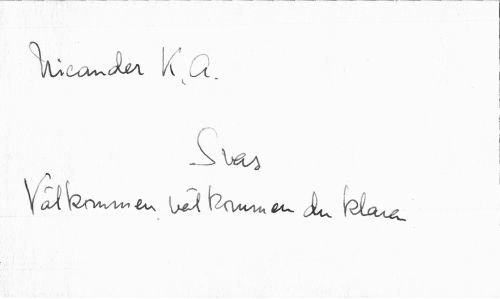 Nicander K. A.
Svas
Välkommen, välkommen du klara